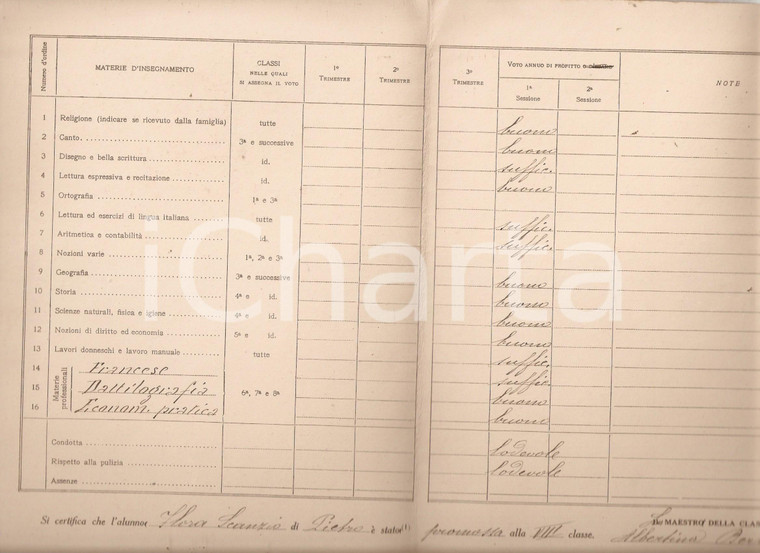 Numero d'ordine
MATERIE D'INSEGNAMENTO
CLASSI NELLE QUALI SI ASSEGNA IL VOTO
1º TRIMESTRE
2º TRIMESTRE
3º TRIMESTRE
VOTO ANNUO DI PROFITTO
1ª Sessione
2ª Sessione
NOTE
1 Religione (indicare se ricevuto dalla famiglia) tutte buono
2 Canto 3ª e successive buono
3 Disegno e bella scrittura id. suffic.
4 Lettura espressiva e recitazione id. buono
5 Ortografia 1ª e 3ª
6 Lettura ed esercizi di lingua italiana tutte suffic.
7 Aritmetica e contabilità id. suffic.
8 Nozioni varie 1ª, 2ª e 3ª
9 Geografia 3ª e successive buono
10 Storia 4ª e id. buono
11 Scienze naturali, fisica e igiene 4ª e id. buono
12 Nozioni di diritto ed economia 5ª e id. buono
13 Lavori donneschi e lavoro manuale tutte suffic.
Materie professionali
14 Francese suffic.
15 Dattilografia 6ª, 7ª e 8ª buono
16 Econom. pratica buono
Condotta lodevole
Rispetto alla pulizia lodevole
Assenze
Si certifica che l'alunno Flora Scanzio di Pietro è stato(1) promossa alla VIII classe.
MAESTRO DELLA CLAS
Albertina
iCharta